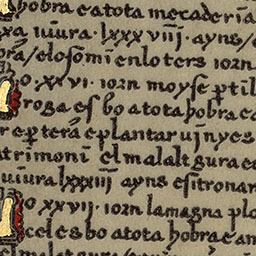 hobra e atota mecaderia
xa. uiura. lxxx viiij. ayns / e
bra / elo somi enlo ters iorn
o. xx vi. iorn moyse per til
roga es bo atota hobra e ca
re per tera e plantar uinyes
atrimoni el malalt gura e
uiura lxxxiij ayns esi tronar
o xxvij. iorn lamagna plo
cel es bo atota hobra e an